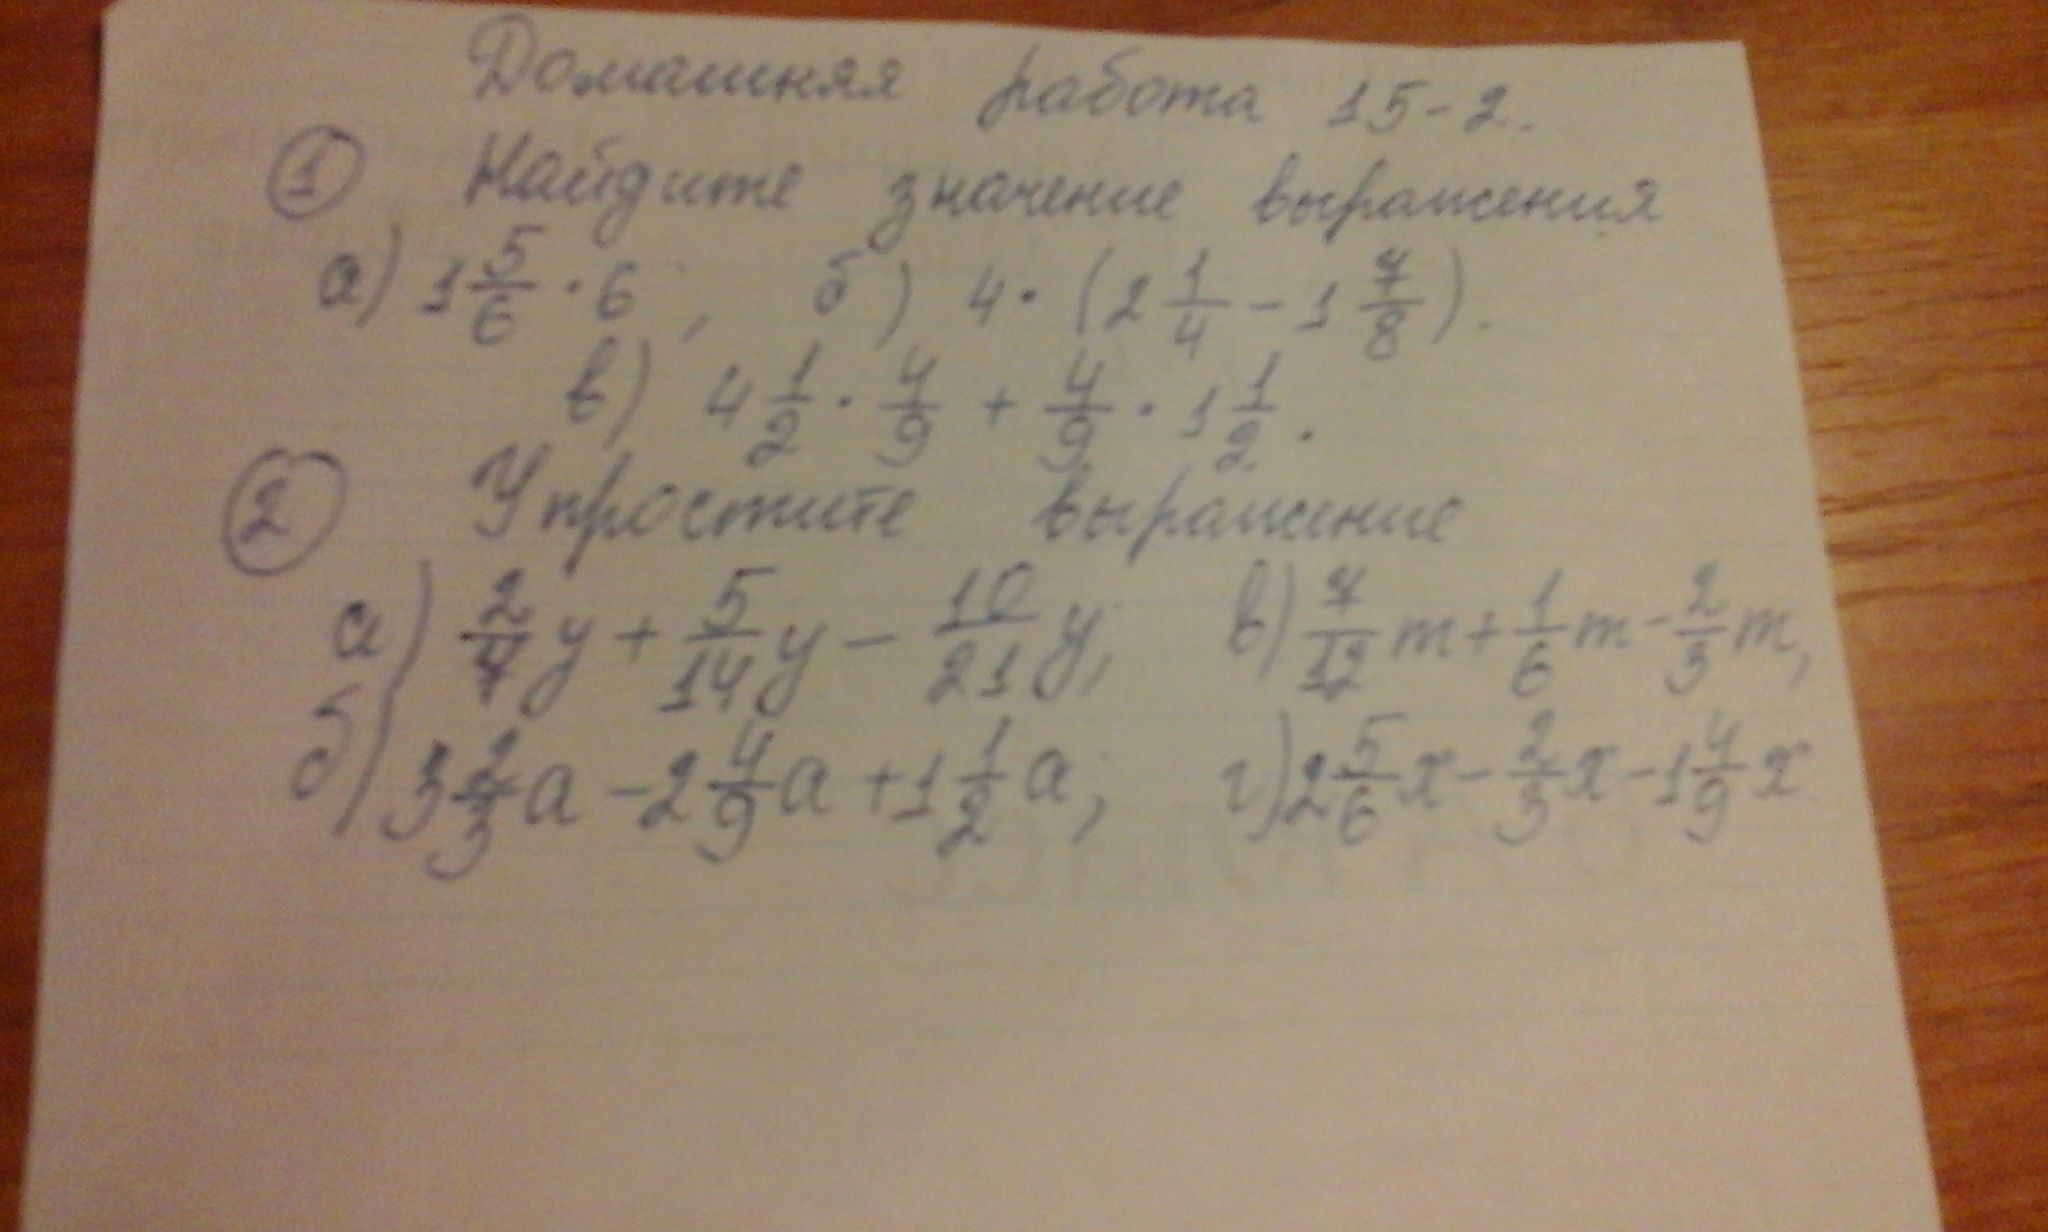 Домашняя работа 15-2.
① Найдите значение выражения
а) 1 5/6 · 6 ; б) 4 · (2 1/4 - 1 7/8).
в) 4 1/2 · 4/9 + 4/9 · 1 1/2.
② Упростите выражение
а) 2/7 y + 5/14 y - 10/21 y; в) 7/12 m + 1/6 m - 2/3 m,
б) 3 2/3 a - 2 4/9 a + 1 1/2 a; г) 2 5/6 x - 2/3 x - 1 4/9 x